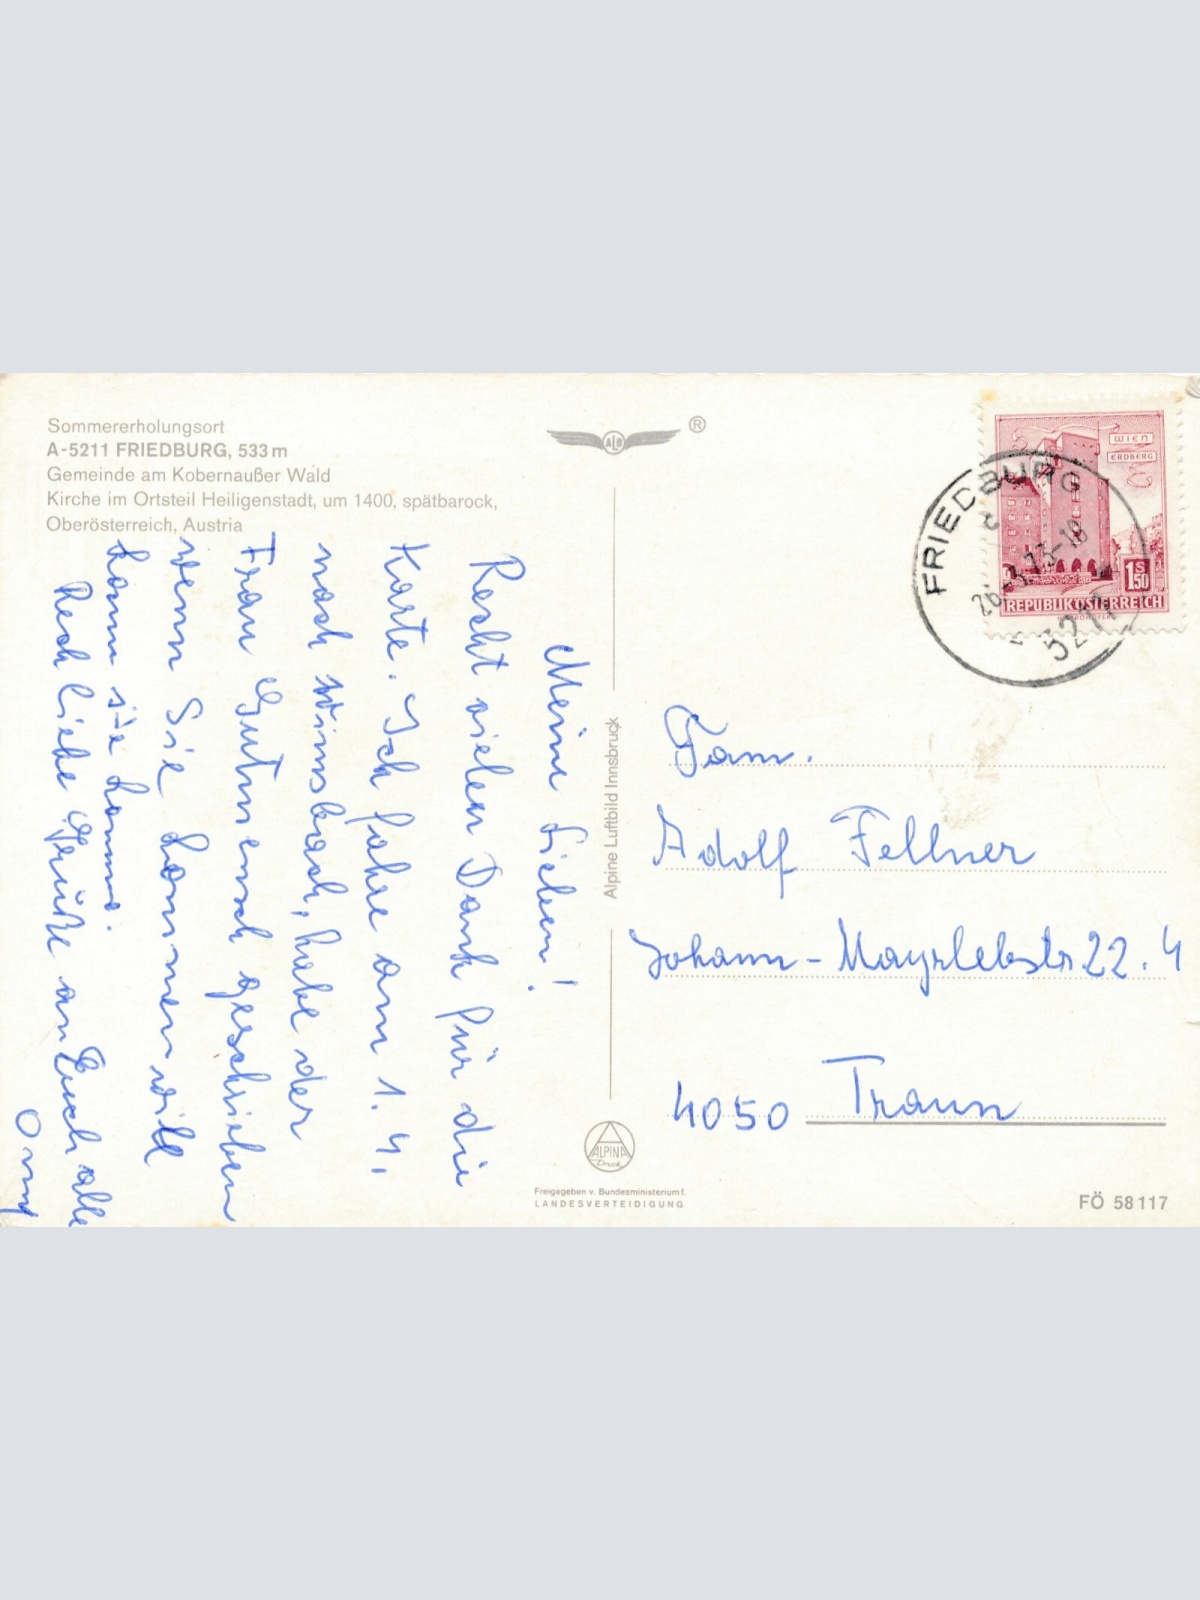 Sommererholungsort
A-5211 FRIEDBURG, 533 m
Gemeinde am Kobernaußer Wald
Kirche im Ortsteil Heiligenstadt, um 1400, spätbarock,
Oberösterreich, Austria
Meine Lieben!
Recht vielen Dank für die
Karte. Ich fahre am 1. 4.
nach Wimsbach, habe der
Frau Gutmensch geschrieben
wenn Sie kommen will
kann sie kommen.
Rech liebe Grüße an Euch alle
Omy
ALB
®
Alpine Luftbild Innsbruck
ALPINA
Druck
Freigegeben v. Bundesministerium f.
LANDESVERTEIDIGUNG
WIEN
ERDBERG
1 S 50
REPUBLIK ÖSTERREICH
FRIEDBURG
26.-3.73-18
5211
Fam.
Adolf Fellner
Johann-Mayrlebstr 22. 4
4050 Traun
FÖ 58 117